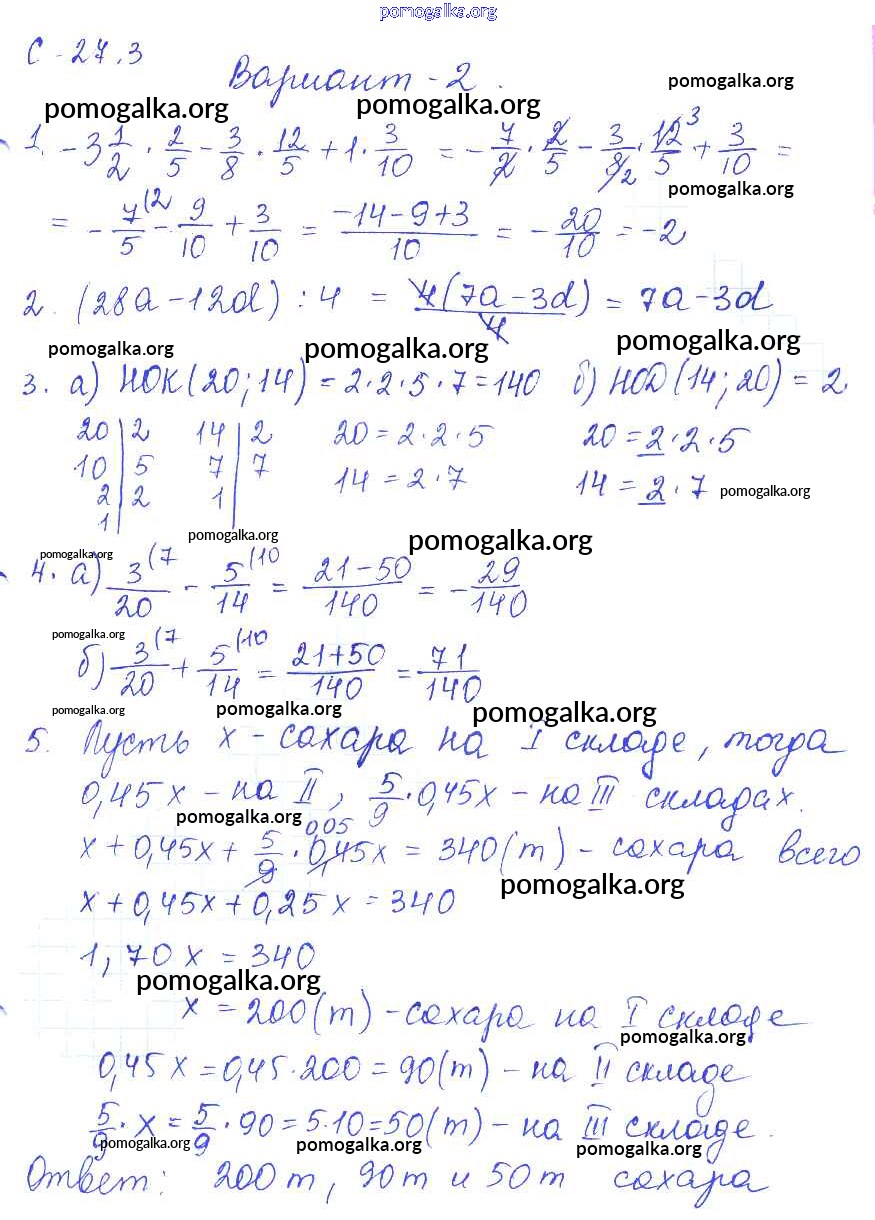 pomogalka.org
С - 27.3
Вариант - 2.
pomogalka.org
pomogalka.org pomogalka.org
1. -3 1/2 · 2/5 - 3/8 · 12/5 + 1 · 3/10 = - 7/2 · 2/5 - 3/8 2 · 12 3/5 + 3/10 =
pomogalka.org
= - 7(2/5 - 9/10 + 3/10 = -14-9+3/10 = - 20/10 = -2
2. (28a - 12d) : 4 = 4(7a - 3d)/4 = 7a - 3d
pomogalka.org pomogalka.org pomogalka.org
3. а) НОК(20; 14) = 2·2·5·7 = 140 б) НОД(14; 20) = 2.
20 | 2 14 | 2 20 = 2·2·5 20 = 2·2·5
10 | 5 7 | 7 14 = 2·7 14 = 2·7 pomogalka.org
2 | 2 1 |
1 |
pomogalka.org pomogalka.org
pomogalka.org
4. а) 3(7/20 - 5(10/14 = 21-50/140 = - 29/140
pomogalka.org
б) 3(7/20 + 5(10/14 = 21+50/140 = 71/140
pomogalka.org pomogalka.org pomogalka.org
5. Пусть x - сахара на I складе, тогда
0,45x - на II, 5/9 · 0,45x - на III складах.
pomogalka.org 0,05
x + 0,45x + 5/9 · 0,45x = 340(т) - сахара всего
pomogalka.org
x + 0,45x + 0,25x = 340
1,70x = 340
pomogalka.org
x = 200(т) - сахара на I складе
pomogalka.org
0,45x = 0,45·200 = 90(т) - на II складе
5/9 · x = 5/9 · 90 = 5·10 = 50(т) - на III складе.
pomogalka.org pomogalka.org pomogalka.org
Ответ: 200т, 90т и 50т сахара